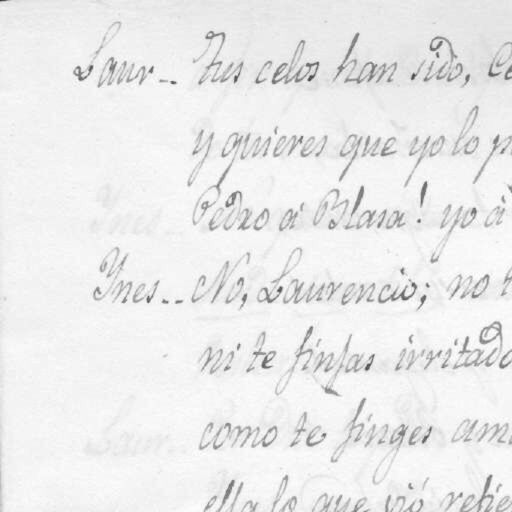 Laur-- tus celos han sido,
y quieres que yo lo
Pedro á Blasa! yo à
Ynes-- No, Laurencio; no
ni te finjas irritado
como te finges
ella lo que vió